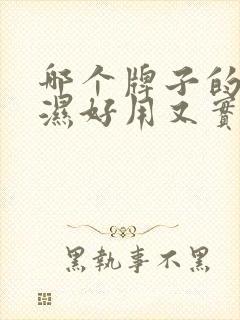 哪个牌子的
濕好用又實
黑執事不黑